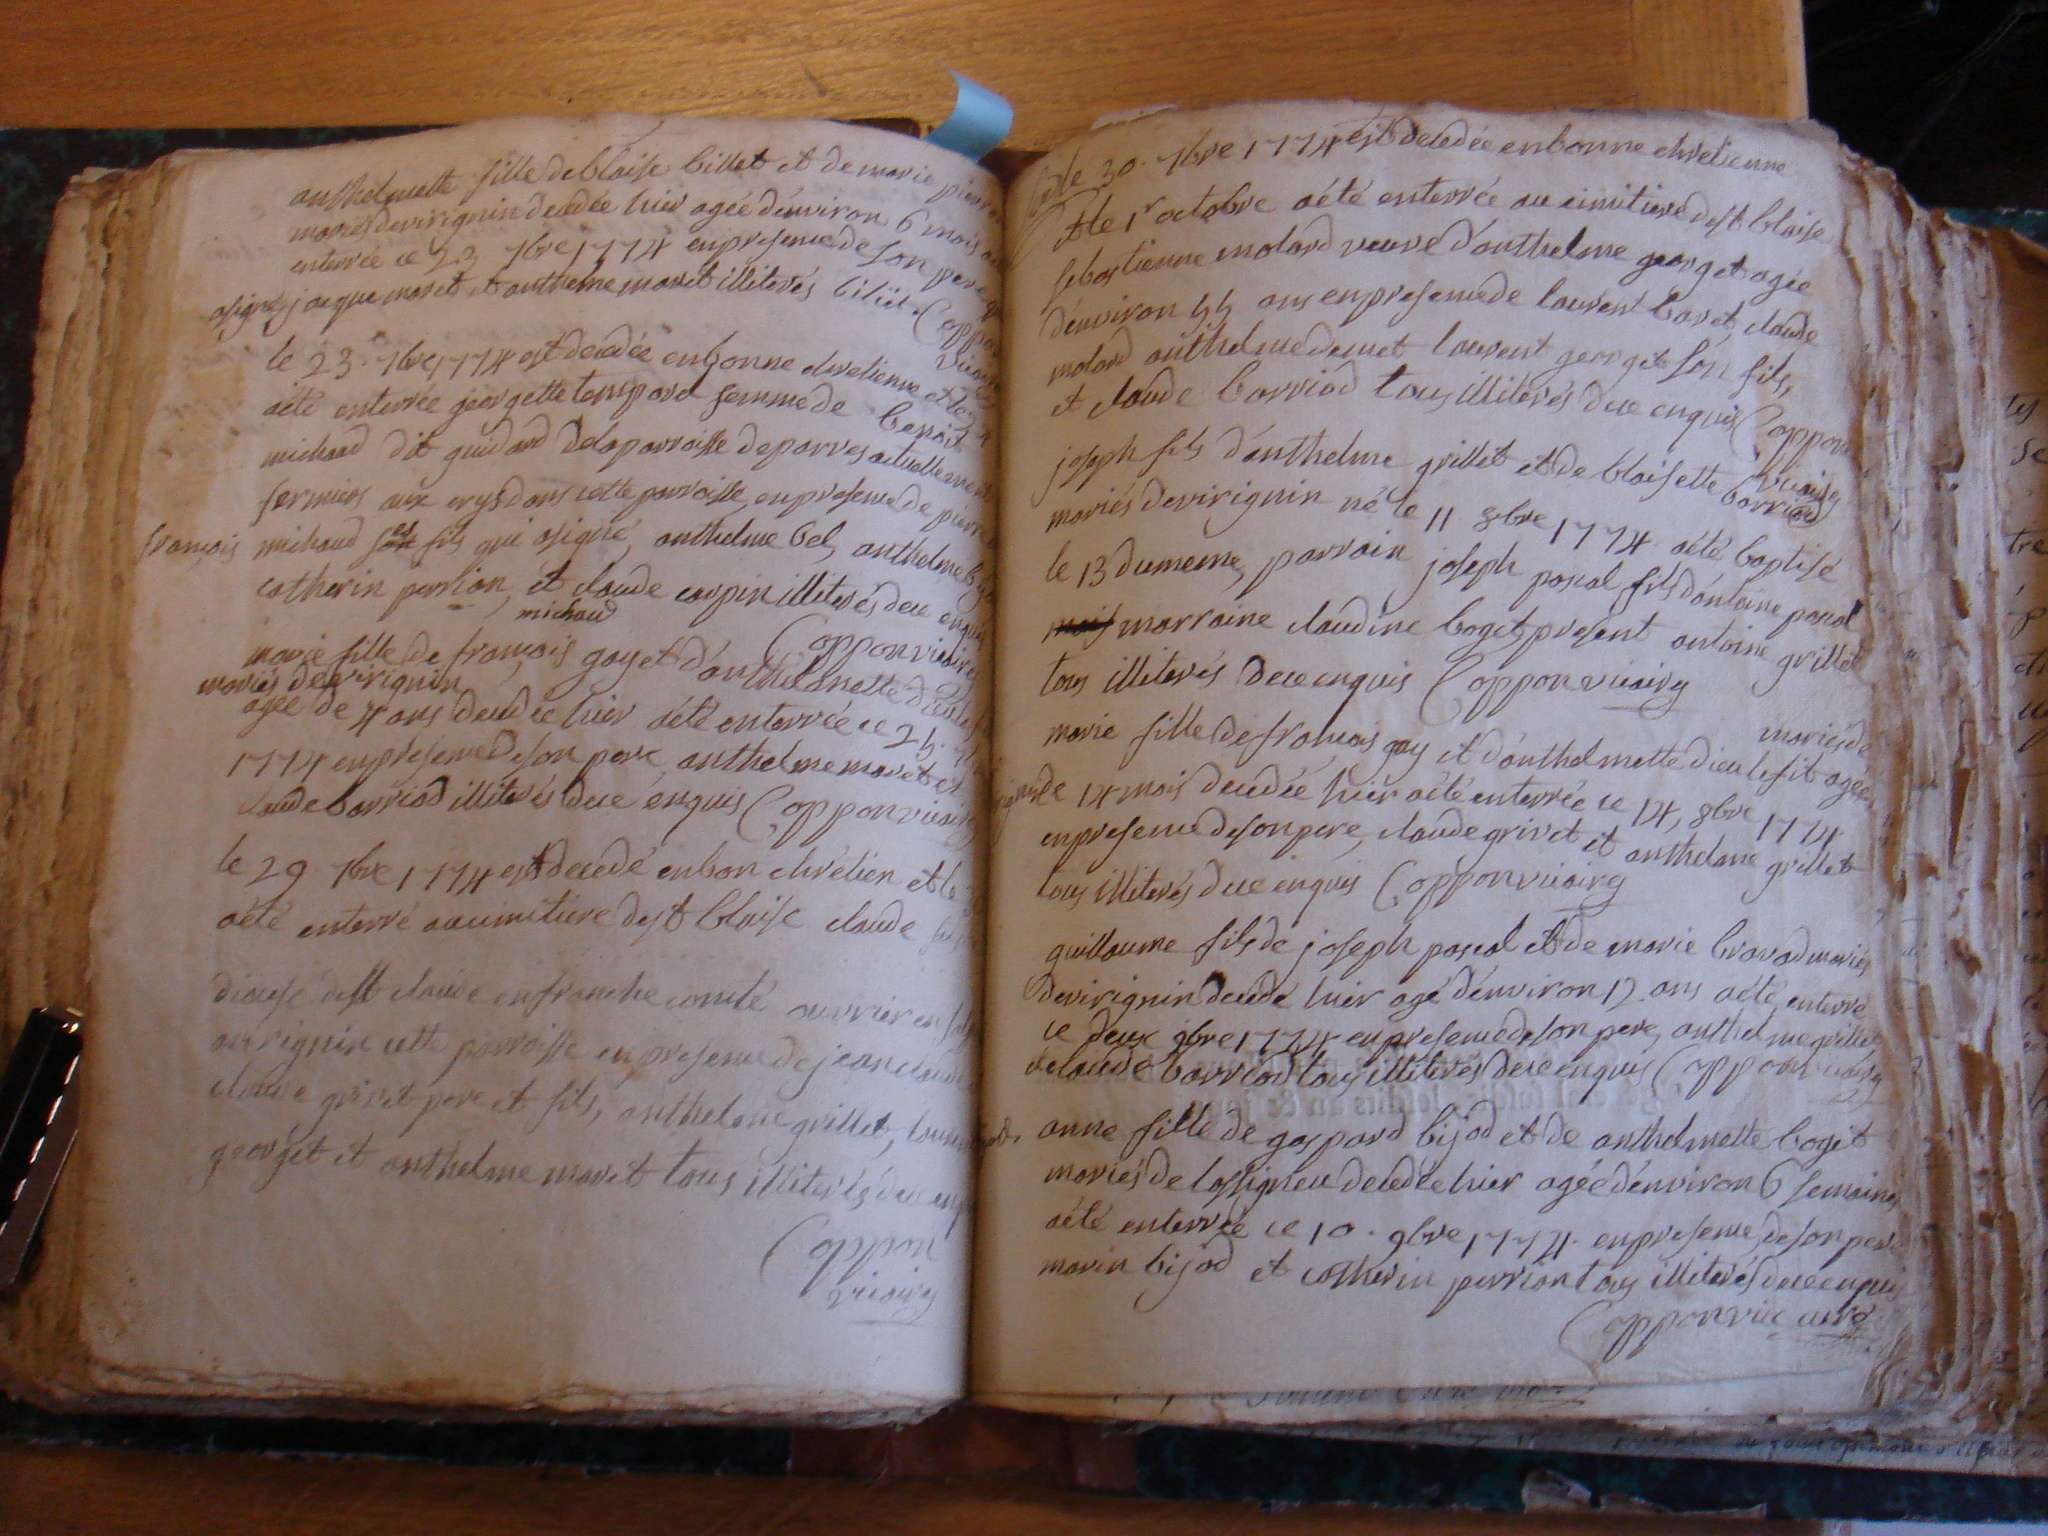 anthelmette fille de blaise billet et de marie pierre
mariés de virignin decedée hier agée d'environ 6 mois a
enterrée ce 23 7bre 1774 en presence de son pere qui
a signé, jacque maret et anthelme maret illiterés billiet. Coppon
vicaire
le 23. 7bre 1774 est decedée en bonne chretienne et le
aété enterrée georgette tempord femme de benoit
michaud dit guidard de la parroisse de parves actuellement
fermiers aux erys dans cette parroisse, en presence de pierre
françois michaud ses fils qui a signé, anthelme bel, anthelme
catherin perrion, et claude carpin illiterés de ce enquis
michaud Coppon vicaire
marie fille de françois gay et d'anthelmette dieu le fit
mariés de virignin
agée de 4 ans decedée hier aété enterrée ce 25.
1774 en presence de son pere, anthelme maret et
claude barriod illiterés de ce enquis Coppon vicaire
le 29 7bre 1774 est decedé en bon chrétien et le
aété enterré au cimitiere de st blaise claude
diocese de st claude en franche comté ouvrier en
a virignin cette parroisse en presence de jean claude
claude grivet pere et fils, anthelme grillet, laurent
georget et anthelme maret tous illiterés de ce enquis
Coppon
vicaire
le 30. 7bre 1774 est decedée en bonne chretienne
et le 1r octobre aété enterrée au cimitiere de st blaise
sebastienne molard veuve d'anthelme georget agée
d'environ 55 ans en presence de laurent baret, claude
molard anthelme demet laurent georget son fils,
et claude barriod tous illiterés de ce enquis Coppon
vicaire
joseph fils d'anthelme grillet et de blaisette barriod
mariés de virignin né le 11. 8bre 1774 aété baptisé
le 13 du meme, parrain joseph pascal fils d'antoine pascal
marraine claudine boget, present antoine grillet
tous illiterés de ce enquis Coppon vicaire
mariés de
marie fille de françois gay et d'anthelmette dieu le fit agée
virignin de 14 mois decedée hier aété enterrée ce 14, 8bre 1774
en presence de son pere, claude grivet et anthelme grillet
tous illiterés de ce enquis Coppon vicaire
guillaume fils de joseph pascal et de marie bravad mariés
de virignin decedé hier agé d'environ 12 ans aété enterré
ce deux 9bre 1774 en presence de son pere, anthelme grillet
et claude barriod tous illiterés de ce enquis Coppon vicaire
anne fille de gaspard bijod et de anthelmette boget
mariés de lassignieu decedée hier agée d'environ 6 semaines
aété enterrée ce 10. 9bre 1774. en presence de son pere
marin bijod et catherin perrion tous illiterés de ce enquis
Coppon vic